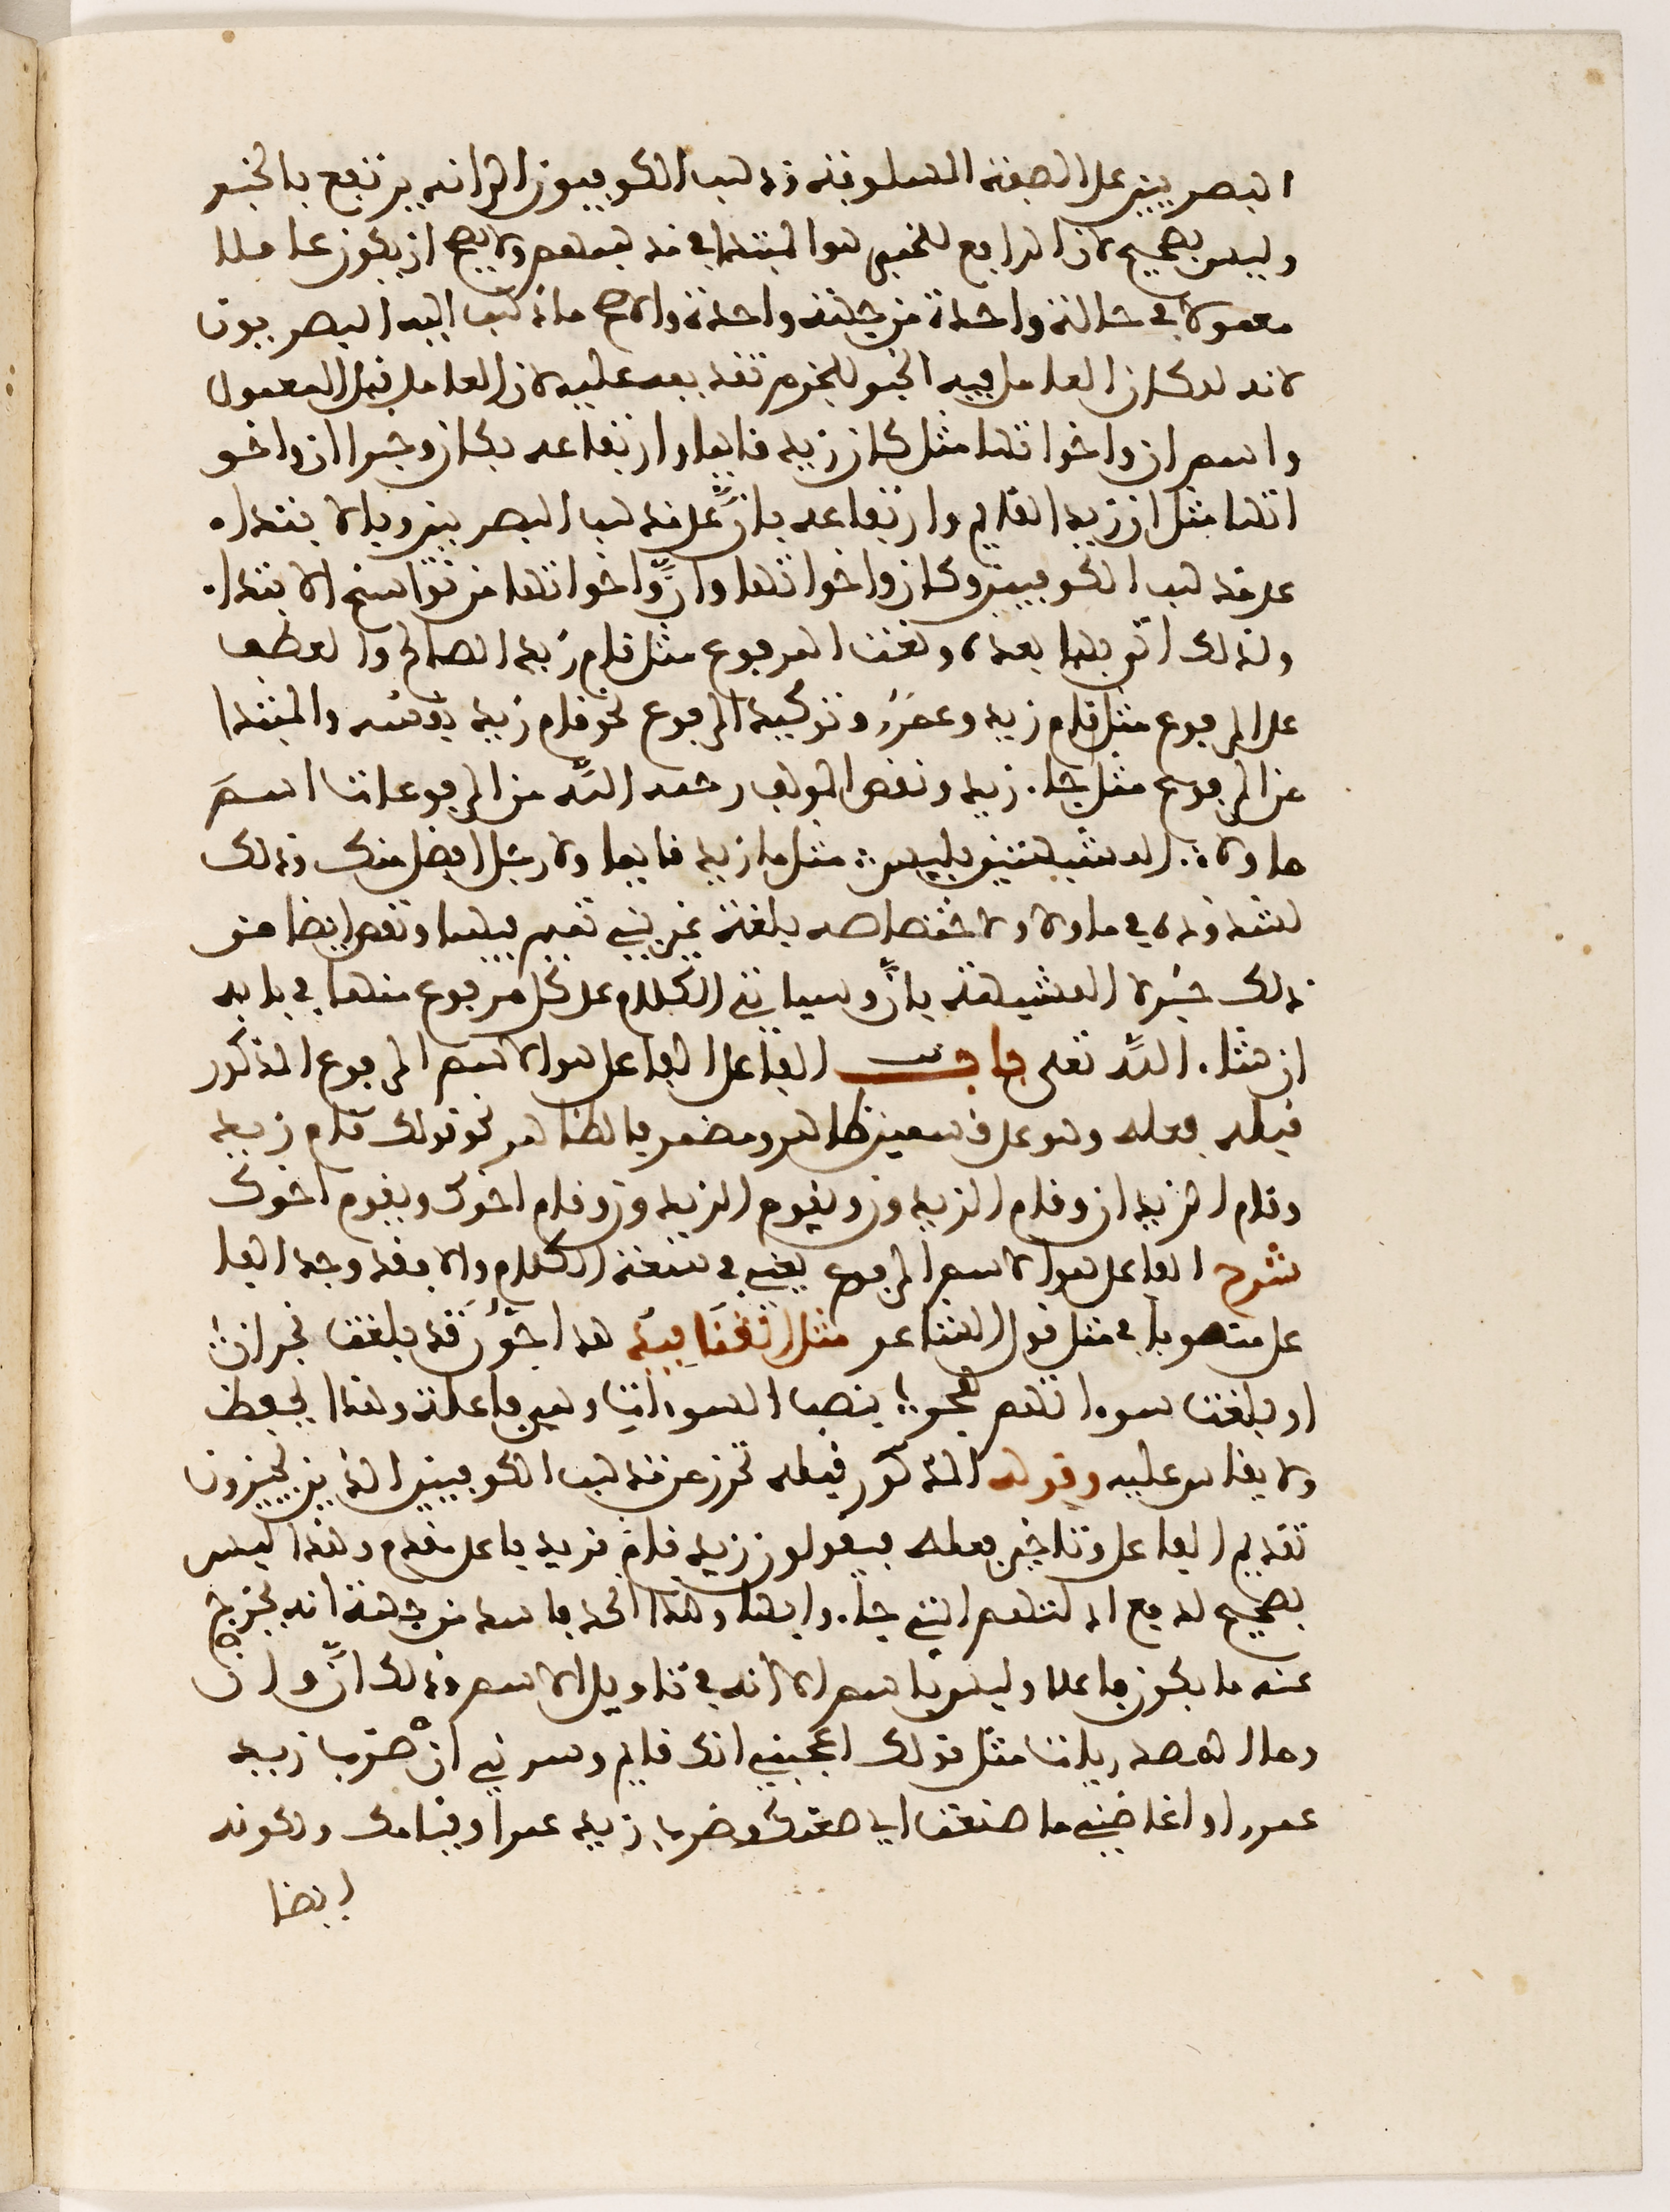 البصريين على الصفة المسلوفة وذهب الكوفيون الى انه يرتفع بالخبر
وليس بصحيح لان الرافع للخبر هو المبتدا في مذهبهم ولا يصح ان يكون عاملا
معمولا في حالة واحدة من جهة واحدة والاصح ما ذهب اليه البصريون
لانه لو كان العامل فيه الخبر للزم تقديمه عليه لان العامل قبل المعمول
واسم ان واخواتها مثل كان زيد قايما وارتفاعه بكان وخبر ان واخو
اتها مثل ان زيدا قايم وارتفاعه بانّ على مذهب البصريين وبالابتداء
على مذهب الكوفيين وكان واخواتها وانّ واخواتها من نواسخ الابتداء
ولذلك اتى بهما بعده ونعت المرفوع مثل قام زيد الصالح والعطف
على المرفوع مثل قام زيد وعمرو وتوكيد المرفوع نحو قام زيد نفسه والمبتدا
من المرفوع مثل جاء زيد ونقص المولف رحمه الله من المرفوعات اسم
ما ولا المشبهتين بليس مثل ما زيد قايما ولا رجل افضل منك وذلك
لشذوذه في ما ولا ولاختصاصه بلغة غير بني تميم فيهما ونقص ايضا من
ذلك خبر لا المشبهة بانّ وسياتي الكلام على كل مرفوع منهما في بابه
ان شاء الله تعلى باب الفاعل الفاعل هو الاسم المرفوع المذكور
قبله فعله وهو على قسمين ظاهر ومضمر فالظاهر نحو قولك قام زيد
وقام الزيدان وقام الزيدون ويقوم الزيدون وقام اخوك ويقوم اخوك
شرح الفاعل هو الاسم المرفوع يعني في سعة الكلام والا فقد وجد الفا
عل منصوبا في مثل قول الشاعر مثل القنافيد هداجون قد بلغت نجران
او بلغت سوءاتهم هجر بنصب السوءات وهي فاعلة وهذا يحفظ
ولا يقاس عليه وقوله المذكور قبله تحرز من مذهب الكوفيين الذين يجيزون
تقديم الفاعل وتاخير فعله فيقولون زيد قام فزيد فاعل مقدم وهذا ليس
بصحيح لدفع التهم التي جاء وايضا وهذا الحد فاسد من جهة انه يخرج
عنه ما يكون فاعلا وليس باسم الا انه في تاويل الاسم وذلك انّ وانْ
وما المصدريات مثل قولك اعجبني انك قايم وسرني ان ضرب زيد
عمرا واغاضني ما صنعت اي صنعك وضرب زيد عمرا وقيامك ولكونه
ايضا